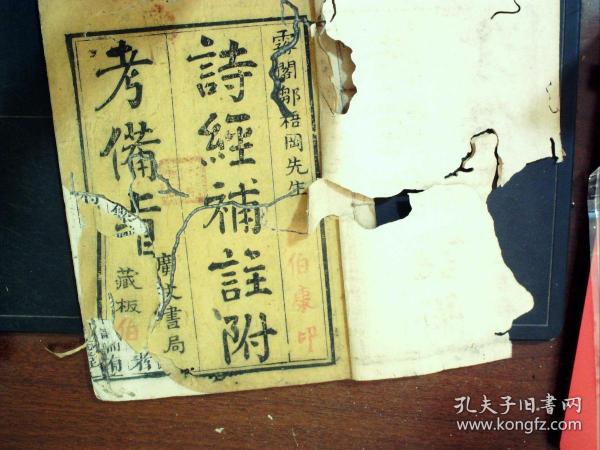 霱閣鄒梧岡先生
詩經補註附
考備旨
廣文書局
藏板
伯康印
伯
孔夫子旧书网
www.kongfz.com